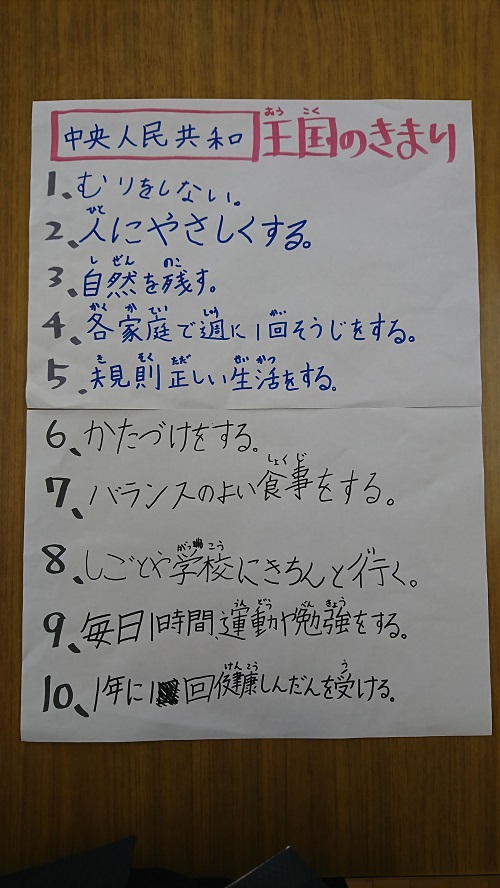 中央人民共和王国のきまり
1、むりをしない。
2、人にやさしくする。
3、自然を残す。
4、各家庭で週に1回そうじをする。
5、規則正しい生活をする。
6、かたづけをする。
7、バランスのよい食事をする。
8、しごとや学校にきちんと行く。
9、毎日1時間、運動や勉強をする。
10、1年に1回健康しんだんを受ける。